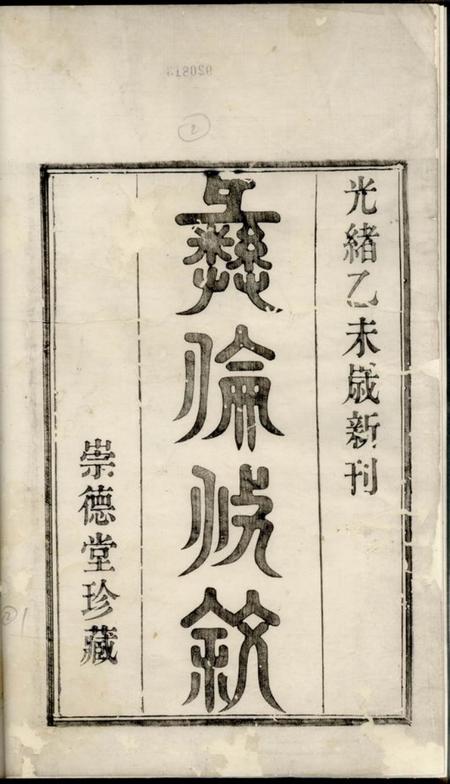 光緒乙未歲新刊
彝倫攸敘
崇德堂珍藏